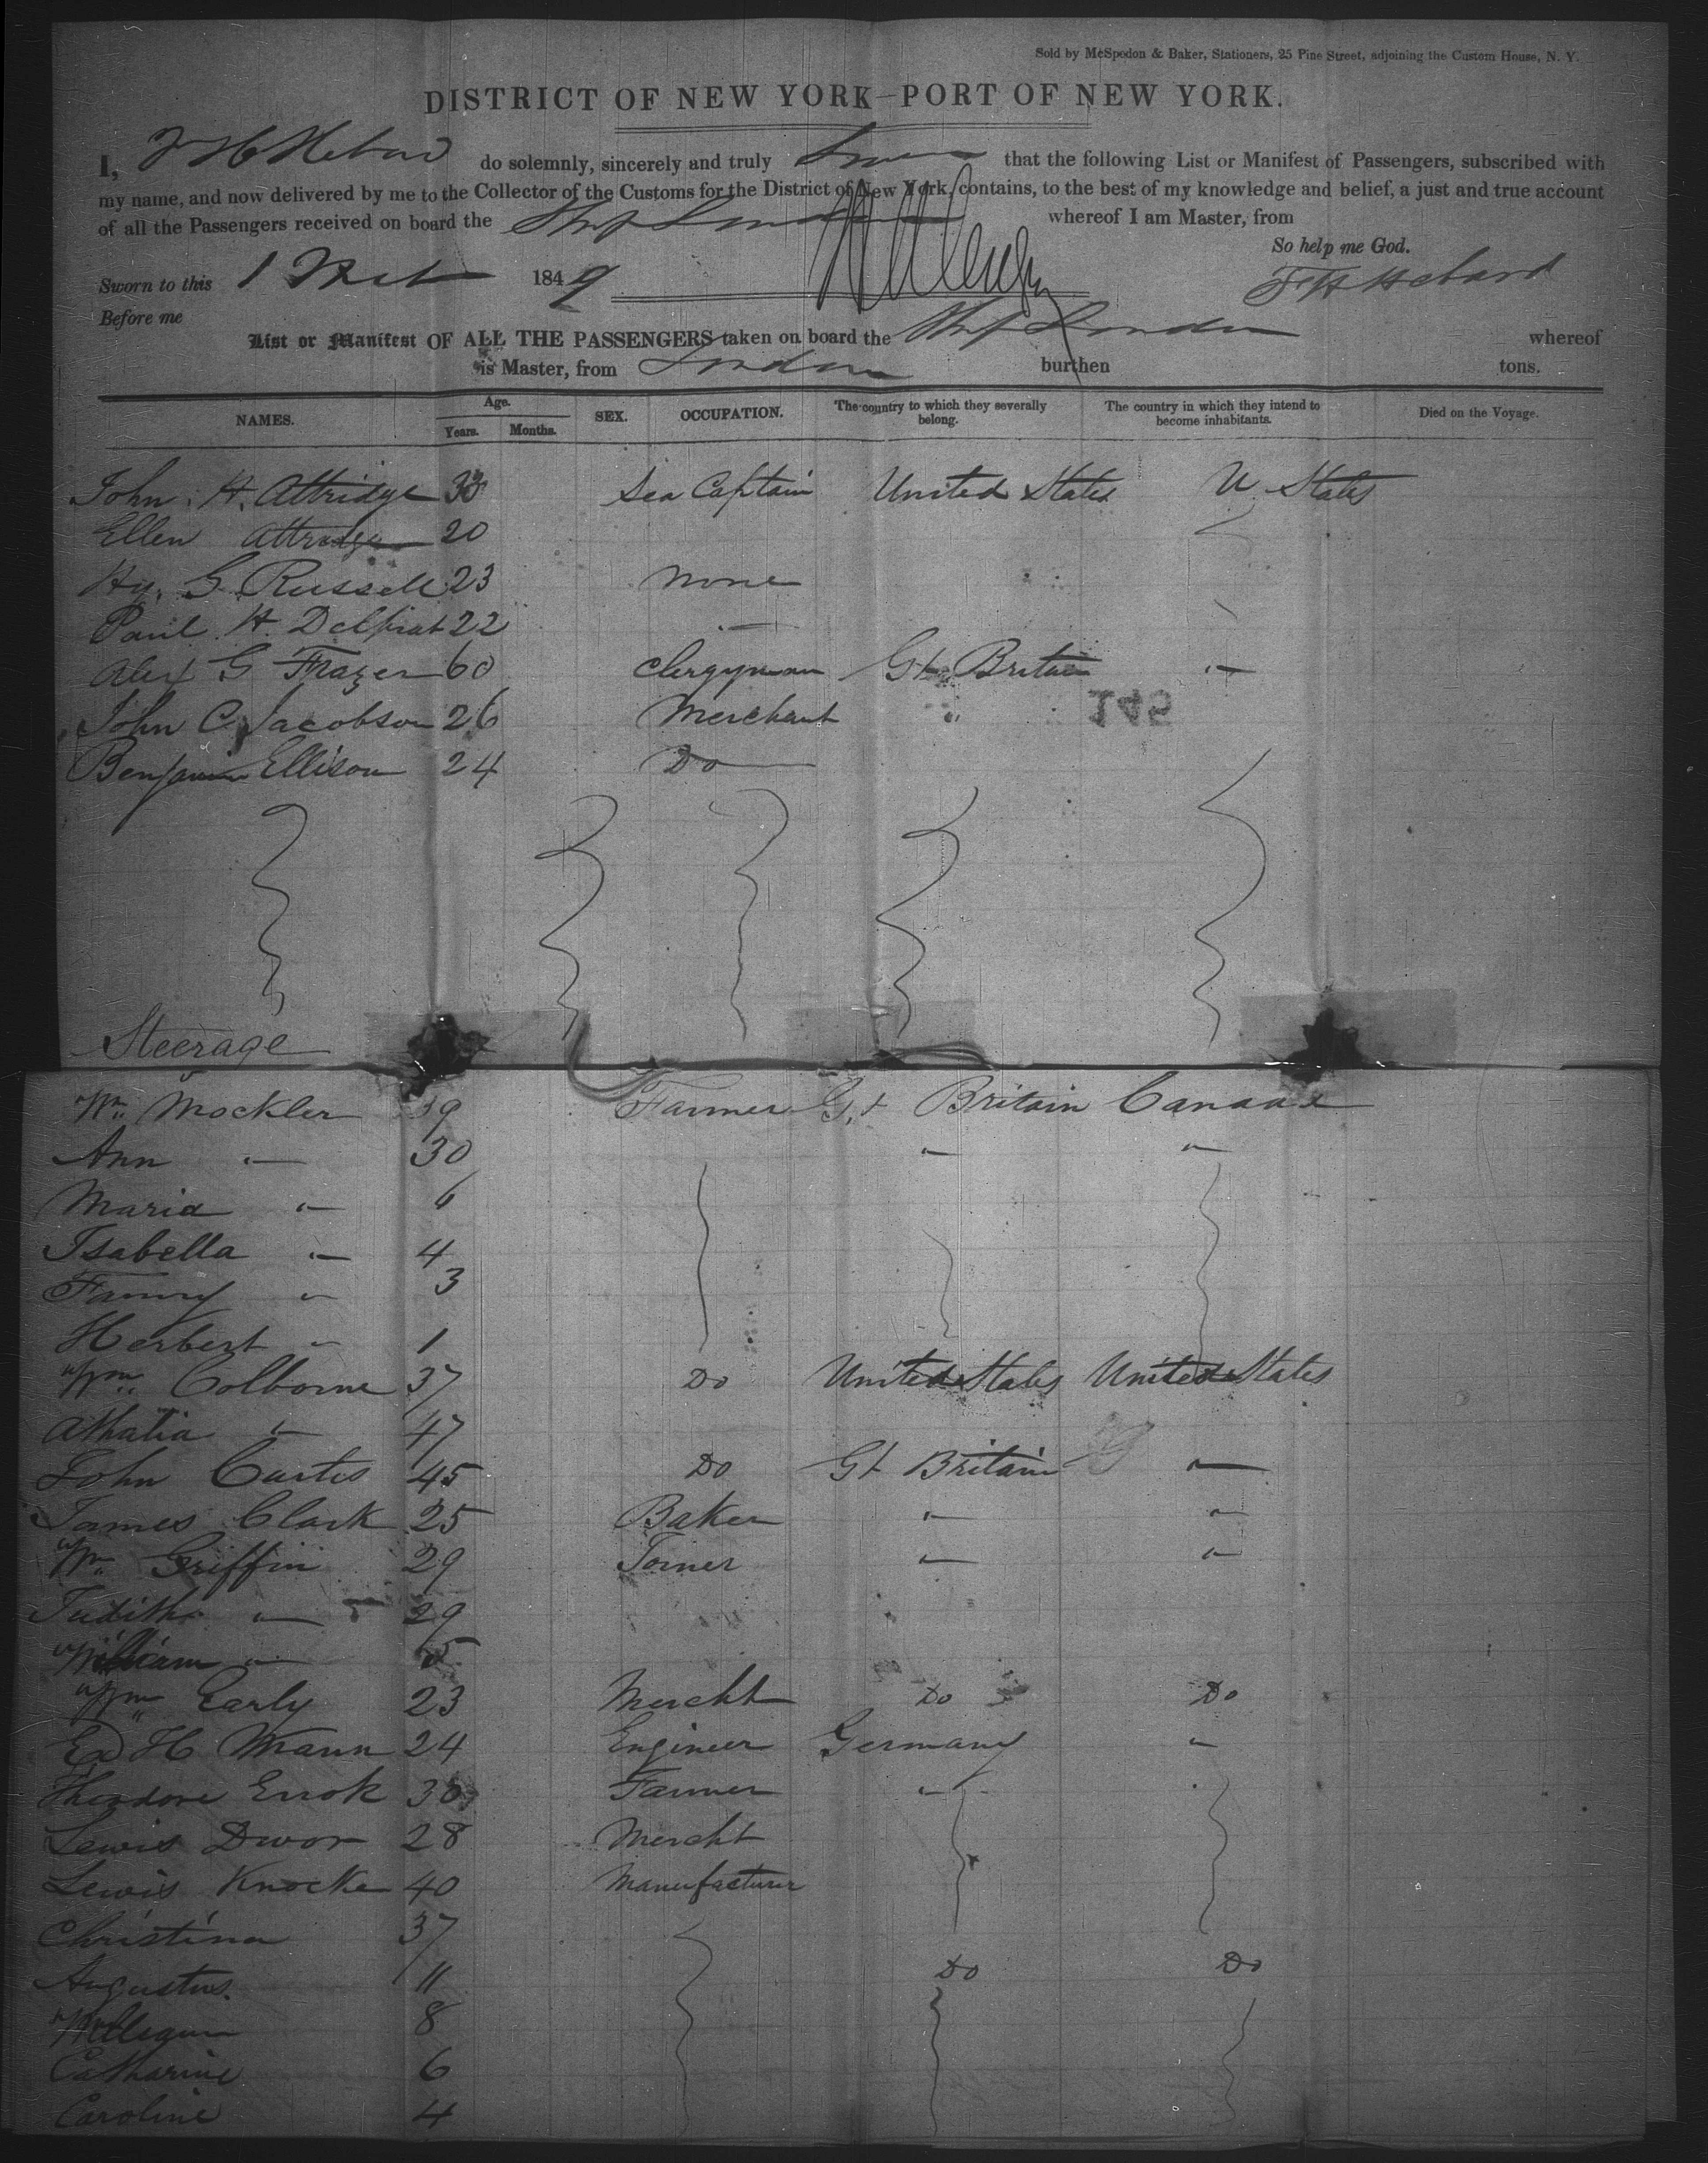 Sold by McSpedon & Baker, Stationers, 25 Pine Street, adjoining the Custom House, N. Y.
DISTRICT OF NEW YORK—PORT OF NEW YORK.
I, F H Hebard do solemnly, sincerely and truly Swear that the following List or Manifest of Passengers, subscribed with
my name, and now delivered by me to the Collector of the Customs for the District of New York, contains, to the best of my knowledge and belief, a just and true account
of all the Passengers received on board the Ship London whereof I am Master, from
So help me God.
Sworn to this 1 1849 F H Hebard
Before me
List or Manifest OF ALL THE PASSENGERS taken on board the Ship London whereof
is Master, from London burthen tons.
NAMES. Age. Years. Months. SEX. OCCUPATION. The country to which they severally belong. The country in which they intend to become inhabitants. Died on the Voyage.
John H. Attridge Sea Captain United States U States
Ellen Attridge 20
Hy. G. Russell 23 None
Paul H. Delprat 22 "
Alex G Frazer 60 Clergyman Gt Britain "
John C. Jacobson 26 Merchant "
145
Benjamin Ellison 24 Do
Steerage
Wm Mockler 39 Farmer Gt Britain Canada
Ann " 30 " "
Maria " 6
Isabella " 4
Fanny " 3
Herbert " 1
Wm Colborne 37 Do United States United States
Athalia " 47
John Curtis 45 Do Gt Britain "
James Clark 25 Baker " "
Wm Griffin 29 Joiner " "
Judith " 29
William "
Wm Early 23 Mercht Do Do
Ed H Mann 24 Engineer Germany "
Theodore Errok 30 Farmer "
Lewis Dwor 28 Mercht
Lewis Knocke 40 Manufacturer
Christina 37
Augustus. 11 Do Do
William 8
Catharine 6
Caroline 4